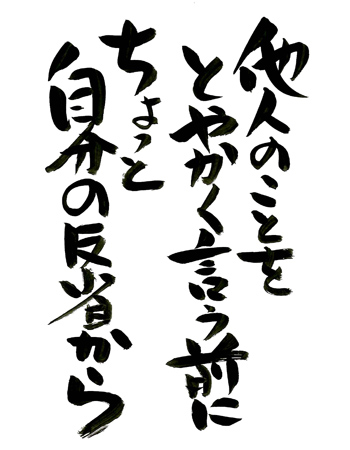 他人のことを
とやかく言う前に
ちょっと
自分の反省から